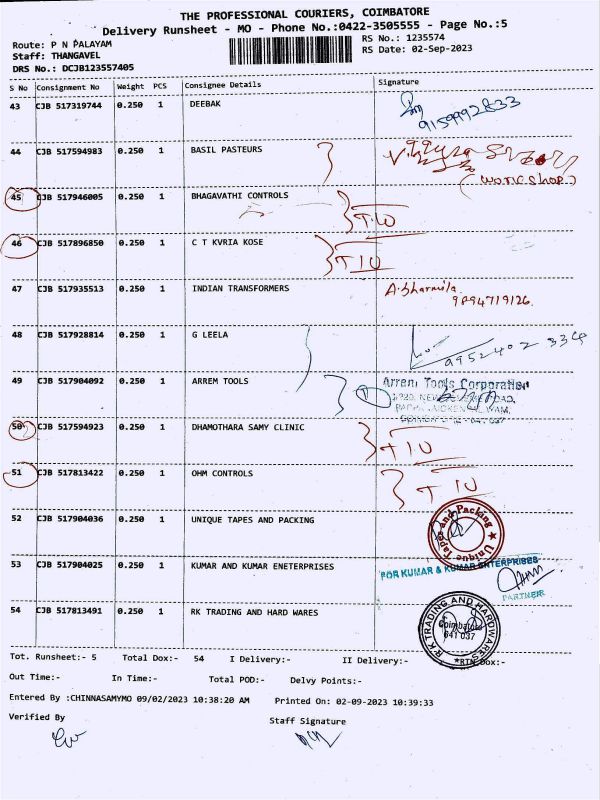 THE PROFESSIONAL COURIERS, COIMBATORE
Delivery Runsheet - MO - Phone No.:0422-3505555 - Page No.:5
Route: P N PALAYAM RS No.: 1235574
Staff: THANGAVEL RS Date: 02-Sep-2023
DRS No.: DCJB123557405
S No Consignment No Weight PCS Consignee Details Signature
43 CJB 517319744 0.250 1 DEEBAK
9159992833
44 CJB 517594983 0.250 1 BASIL PASTEURS
(WORKSHOP)
45 CJB 517946005 0.250 1 BHAGAVATHI CONTROLS
46 CJB 517896850 0.250 1 C T KVRIA KOSE
47 CJB 517935513 0.250 1 INDIAN TRANSFORMERS A.Sharmila
9894719126.
48 CJB 517928814 0.250 1 G LEELA
9952402 334
49 CJB 517904092 0.250 1 ARREM TOOLS Arrem Tools Corporation
50 CJB 517594923 0.250 1 DHAMOTHARA SAMY CLINIC
51 CJB 517813422 0.250 1 OHM CONTROLS
52 CJB 517904036 0.250 1 UNIQUE TAPES AND PACKING Unique Tapes and Packing
53 CJB 517904025 0.250 1 KUMAR AND KUMAR ENETERPRISES FOR KUMAR & KUMAR ENTERPRISES
PARTNER
54 CJB 517813491 0.250 1 RK TRADING AND HARD WARES R K TRADING AND HARDWARES
Coimbatore
641 037
Tot. Runsheet:- 5 Total Dox:- 54 I Delivery:- II Delivery:- RTN Dox:-
Out Time:- In Time:- Total POD:- Delvy Points:-
Entered By :CHINNASAMYMO 09/02/2023 10:38:20 AM Printed On: 02-09-2023 10:39:33
Verified By Staff Signature